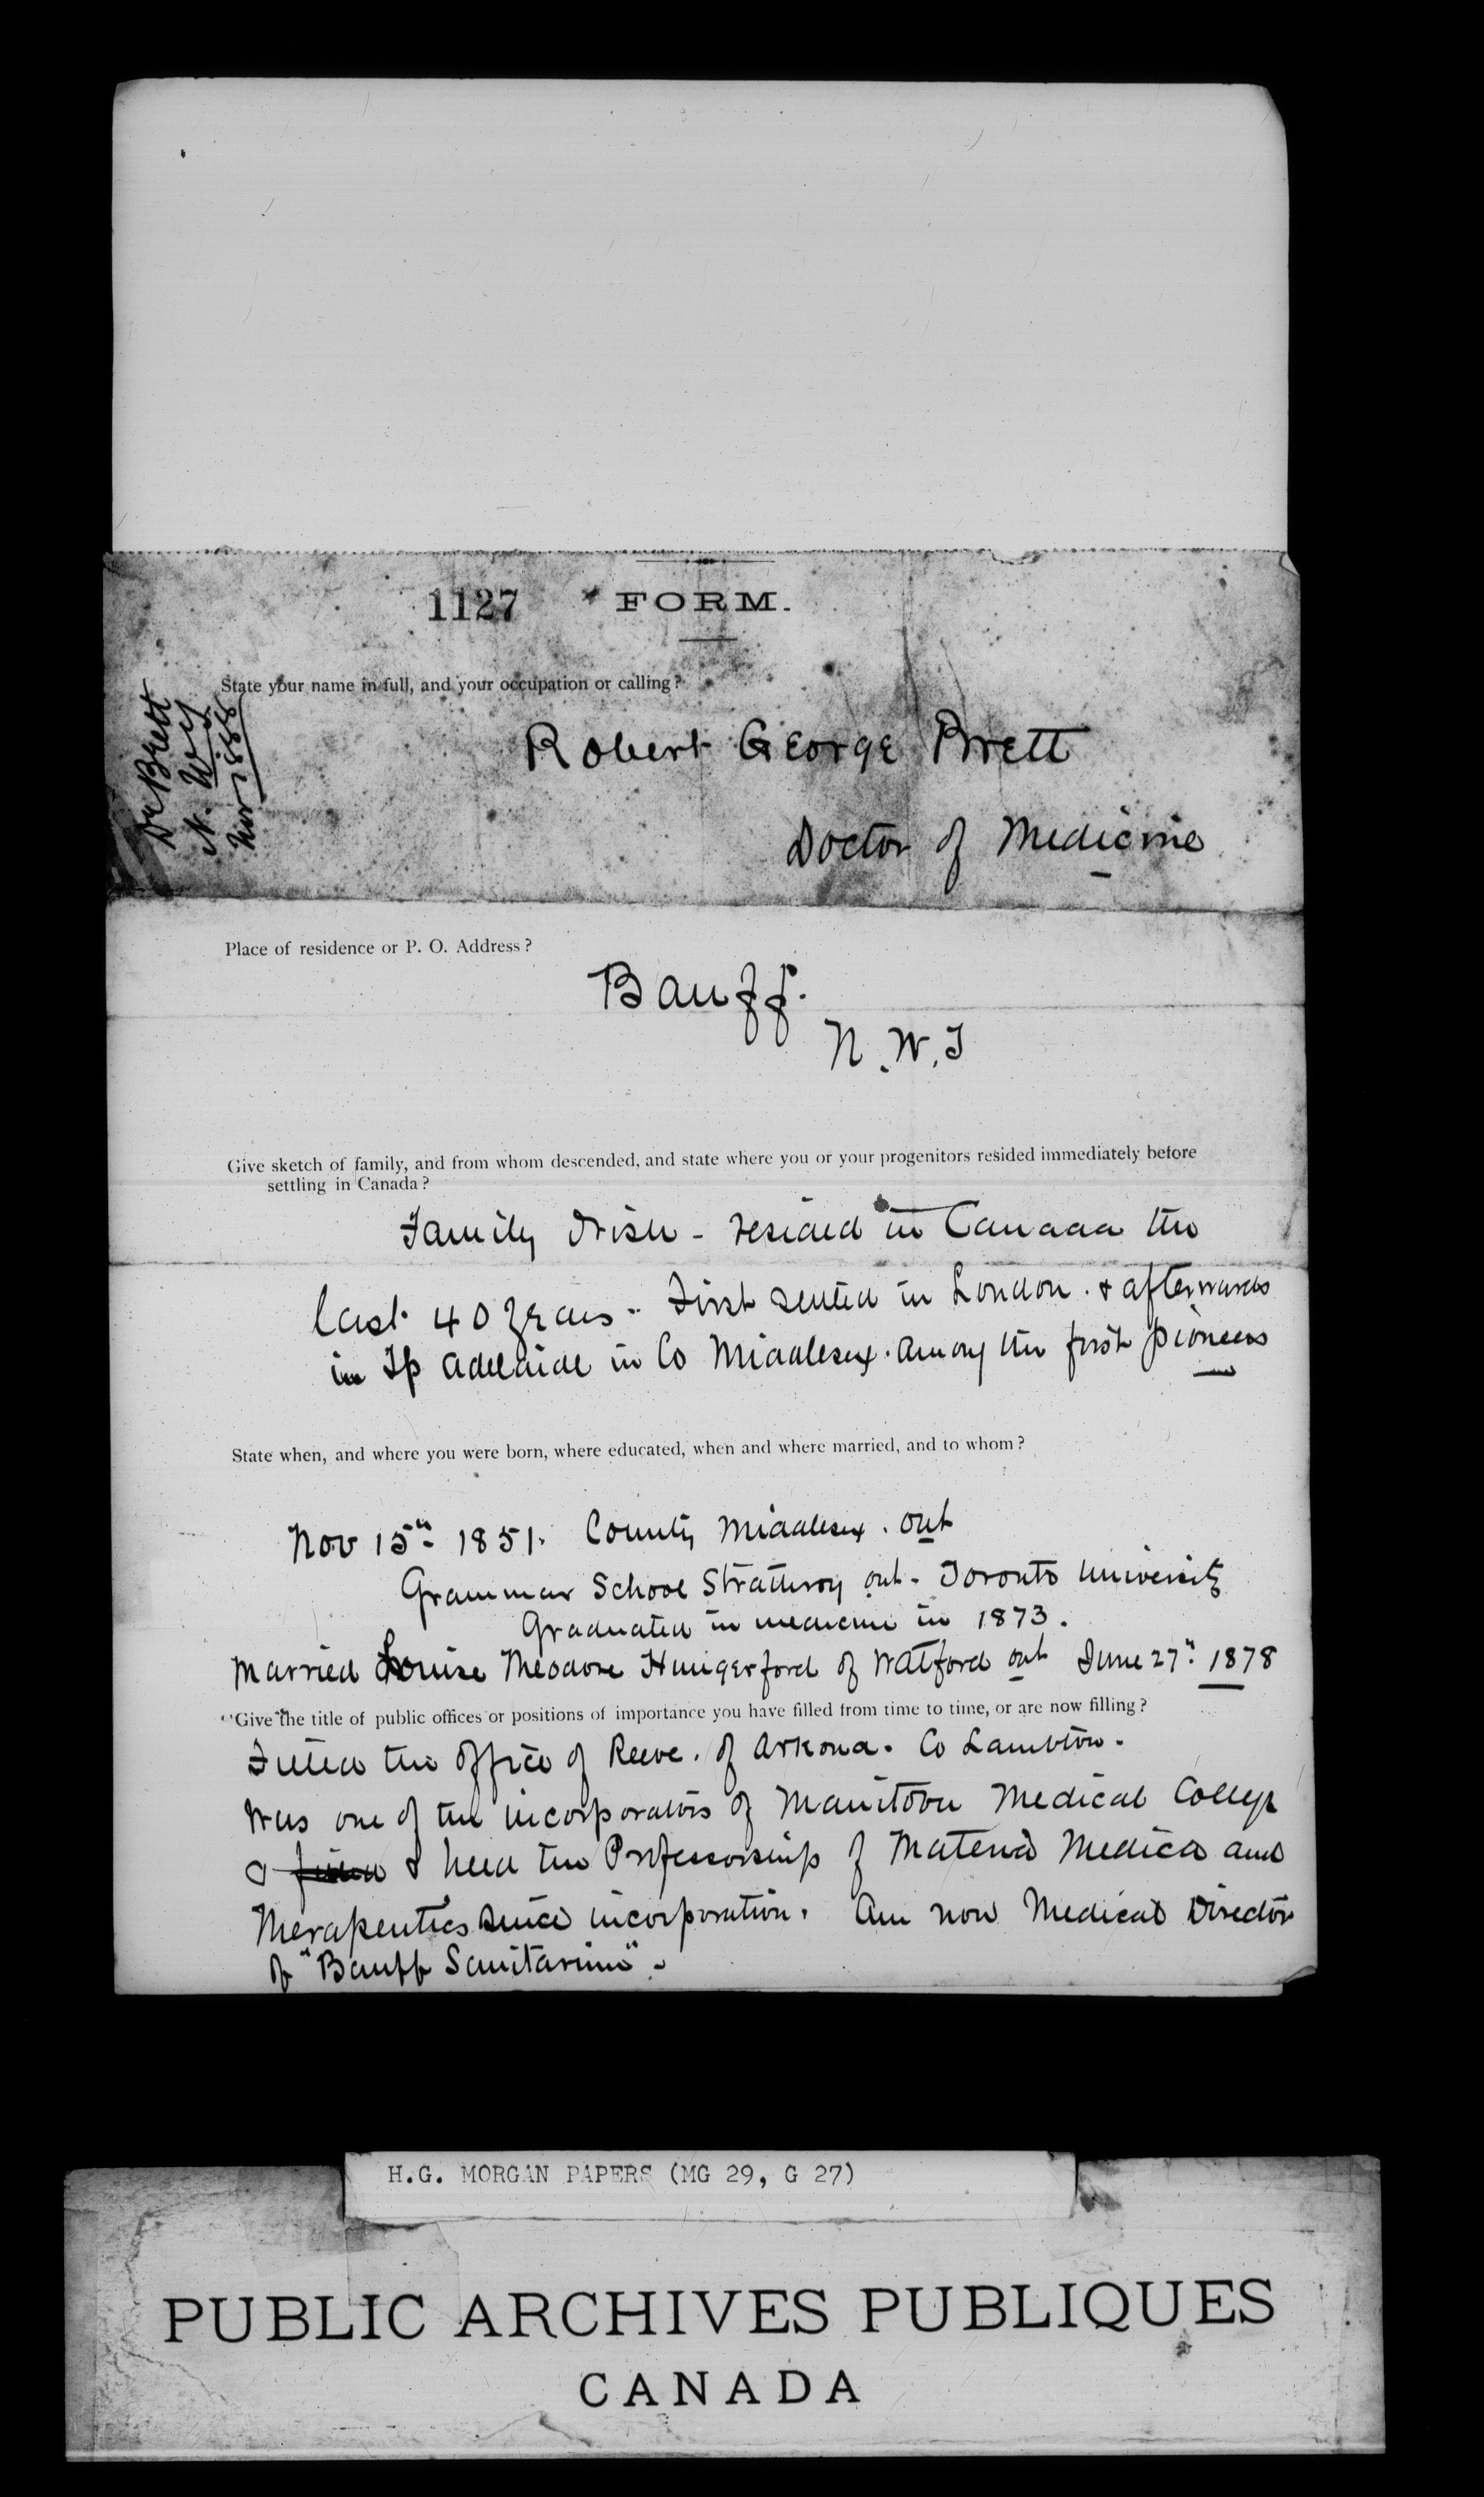 1127 FORM.
State your name in full, and your occupation or calling?
Dr Brett
N. W. T
Nov 1888
Robert George Brett
Doctor of Medicine
Place of residence or P. O. Address?
Banff.
N.W.T
Give sketch of family, and from whom descended, and state where you or your progenitors resided immediately before
settling in Canada?
Family Irish - resided in Canada the
last 40 years - First settled in London. & afterwards
in Tp Adelaide in Co Middlesex. Among the first pioneers
State when, and where you were born, where educated, when and where married, and to whom?
Nov 15th 1851. County Middlesex. Ont
Grammar School Strathroy Ont - Toronto University
Graduated in medicine in 1873.
Married Louise Theodore Hungerford of Watford Ont June 27th 1878
Give the title of public offices or positions of importance you have filled from time to time, or are now filling?
Filled the office of Reeve. of Arkona. Co Lambton.
Was one of the incorporators of Manitoba Medical College
& filled & held the Professorship of Materia Medica and
Therapeutics since incorporation. Am now Medical Director
of "Banff Sanitarium" -
H.G. MORGAN PAPERS (MG 29, G 27)
PUBLIC ARCHIVES PUBLIQUES
CANADA